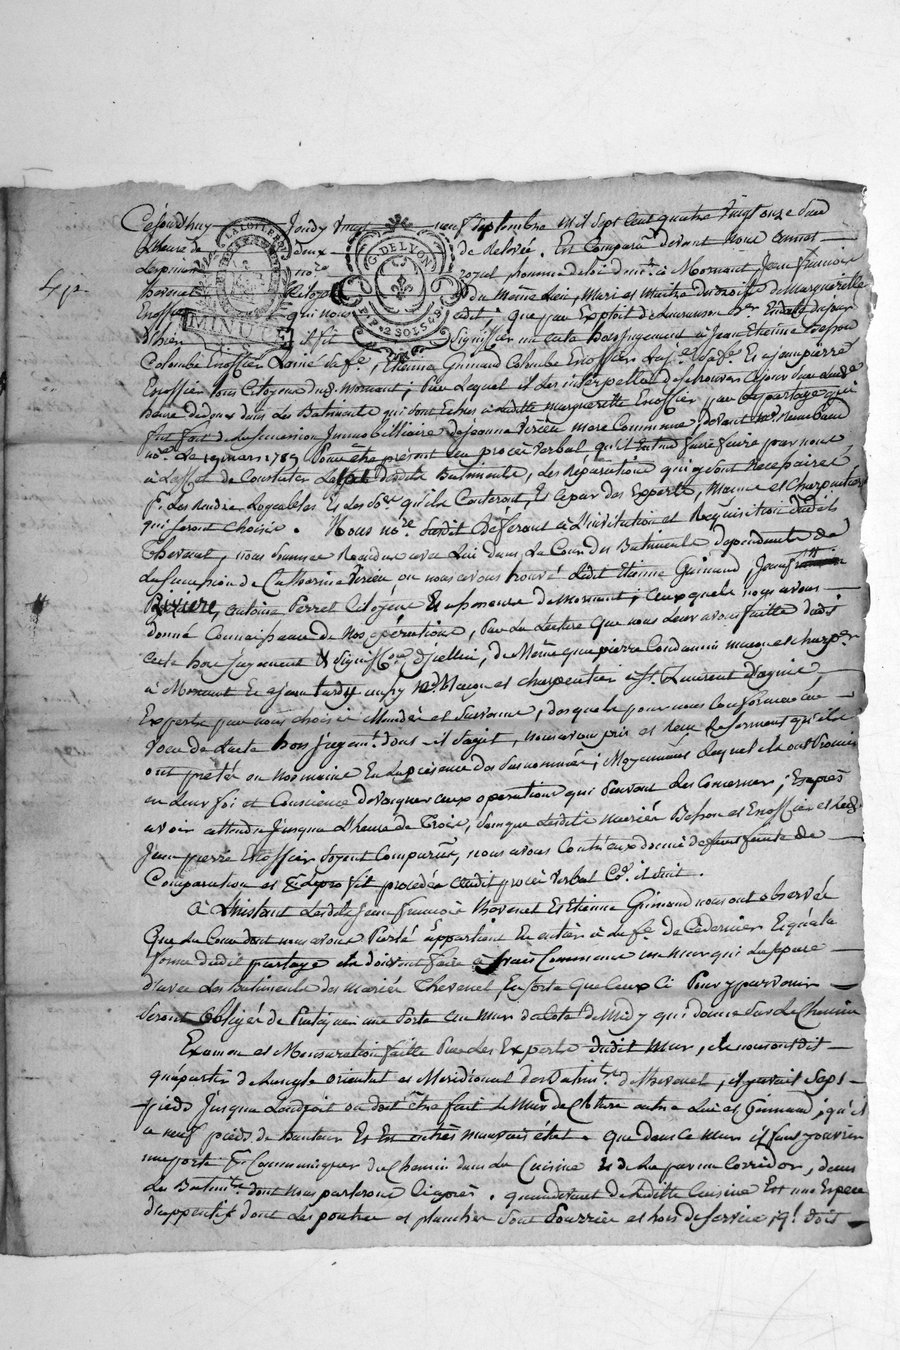 Cejourd'huy Jeudy vingt neuf Septembre mil sept cent quatre vingt onze sur
LA LOI ET LE ROI
G. DE LYON
PAP. 2 SOLS 6 D.
MINUTE
L'heure de deux de Relevée. Est Comparu devant Nous Annet
Lespinasse no.re royal soussigné à Mornant, Jean François
Thevenet Citoyen du Même Lieu, Mari et Maitre des droits de Marguerite
Enossier qui nous a dit; que par Exploit de
d'hier il fit Signiffier un acte horsjugement à Jean Etienne Besson
Colombe Enossier Lainé sa fe., Etienne Grimaud Colombe Enossier sa fe. Et a Jean pierre
Enossier tous Citoyens dud. Mornant; par Lequel il Les interpella de se trouver Cejourd'huy
heure de deux dans Les Batiments qui sont Echus à Laditte Marguerite Enossier par Le partage qui
fut fait de la succession Immobilliaire de Jeanne Perieu Mere Commune devant
no.e Le 19 mars 1789 Pour être présents au procès verbal, qu'il Entend faire faire par nous
à L'effet de Constater Létat desdits Batiments, Les Réparations qui y sont Necessaires
p. Les Rendre Logeables Et Les so.es qu'ils Couteront, Et ce par des Experts, Maçons et Charpentiers
qui seront choisis. Nous no.re susdit Déférant à L'invitation et Réquisition dudit
Thevenet, nous sommes Rendus avec Lui dans La Cour des Batiments dependants de
La succession de Catherine Perieu ou nous avons trouvé Ledit Etienne Grimaud, Jean
Riviere, antoine Perret Citoyens de Mornant; auxquels nous avons
donné Connaissance de Nos opérations, Par La Lecture que nous Leur avons faitte dudit
acte hors jugement & signiff.on d'icellui, de Même que pierre Condamin maçon et charp.er
à Mornant Et a Jean tardy me. Maçon et charpentier à St. Laurent d'agnie,
Experts par nous choisis Mandés et Survenus, desquels pour nous Conformer au
voeu de L'acte hors jugem.t dont il s'agit, nous avons pris et Reçu Le serment qu'ils
ont prété en nos mains En La présence des sus nommés; Moyennant Lequel ils ont Promis
en Leur foi et Conscience de vaquer aux operations qui Peuvent Les Concerner; Et après
avoir attendu jusques à L'heure de Trois, sans que Lesdits mariés Besson et Enossier et Led.
Jean pierre Enossier soyent Comparus, nous avons Contr'eux donné deffaut faute de
Comparution et p. Le profit procédé audit procès verbal Co. il suit.
A L'instant Lesdits Jean François Thevenet Et Etienne Grimaud nous ont observé
Que La Cour dont nous avons Parlé appartient En entier à la fe. de Ce dernier Et qu'à la
forme dudit partage ils doivent faire à frais Communs un mur qui La separe
d'avec Les Batiments des mariés Thevenet, En sorte Que Ceux Ci Pour y parvenir
Seront obligés de Pratiquer une Porte au mur du Coté de Midy qui donne sur Le Chemin
Examen et Mensuration faitte Par Les Experts dudit Mur, ils nous ont dit
qu'à partir de L'angle oriental et Méridional des Batim.ts de Thevenet, il y avait sept
pieds jusques à L'endroit ou doit être fait Le Mur de Cloture entre Lui et Grimaud; qu'il
a neuf pieds de hauteur Et En très mauvais état. Que dans ce Mur il faut y ouvrir
une porte p. Communiquer du Chemin dans La Cuisine Et de La par un Corridor, dans
Les Batim.ts dont nous parlerons Ci après. Qu'au devant de Laditte Cuisine Est une Espece
d'appentif dont Les poutres et plancher sont Pourries et hors de service, q.l doit